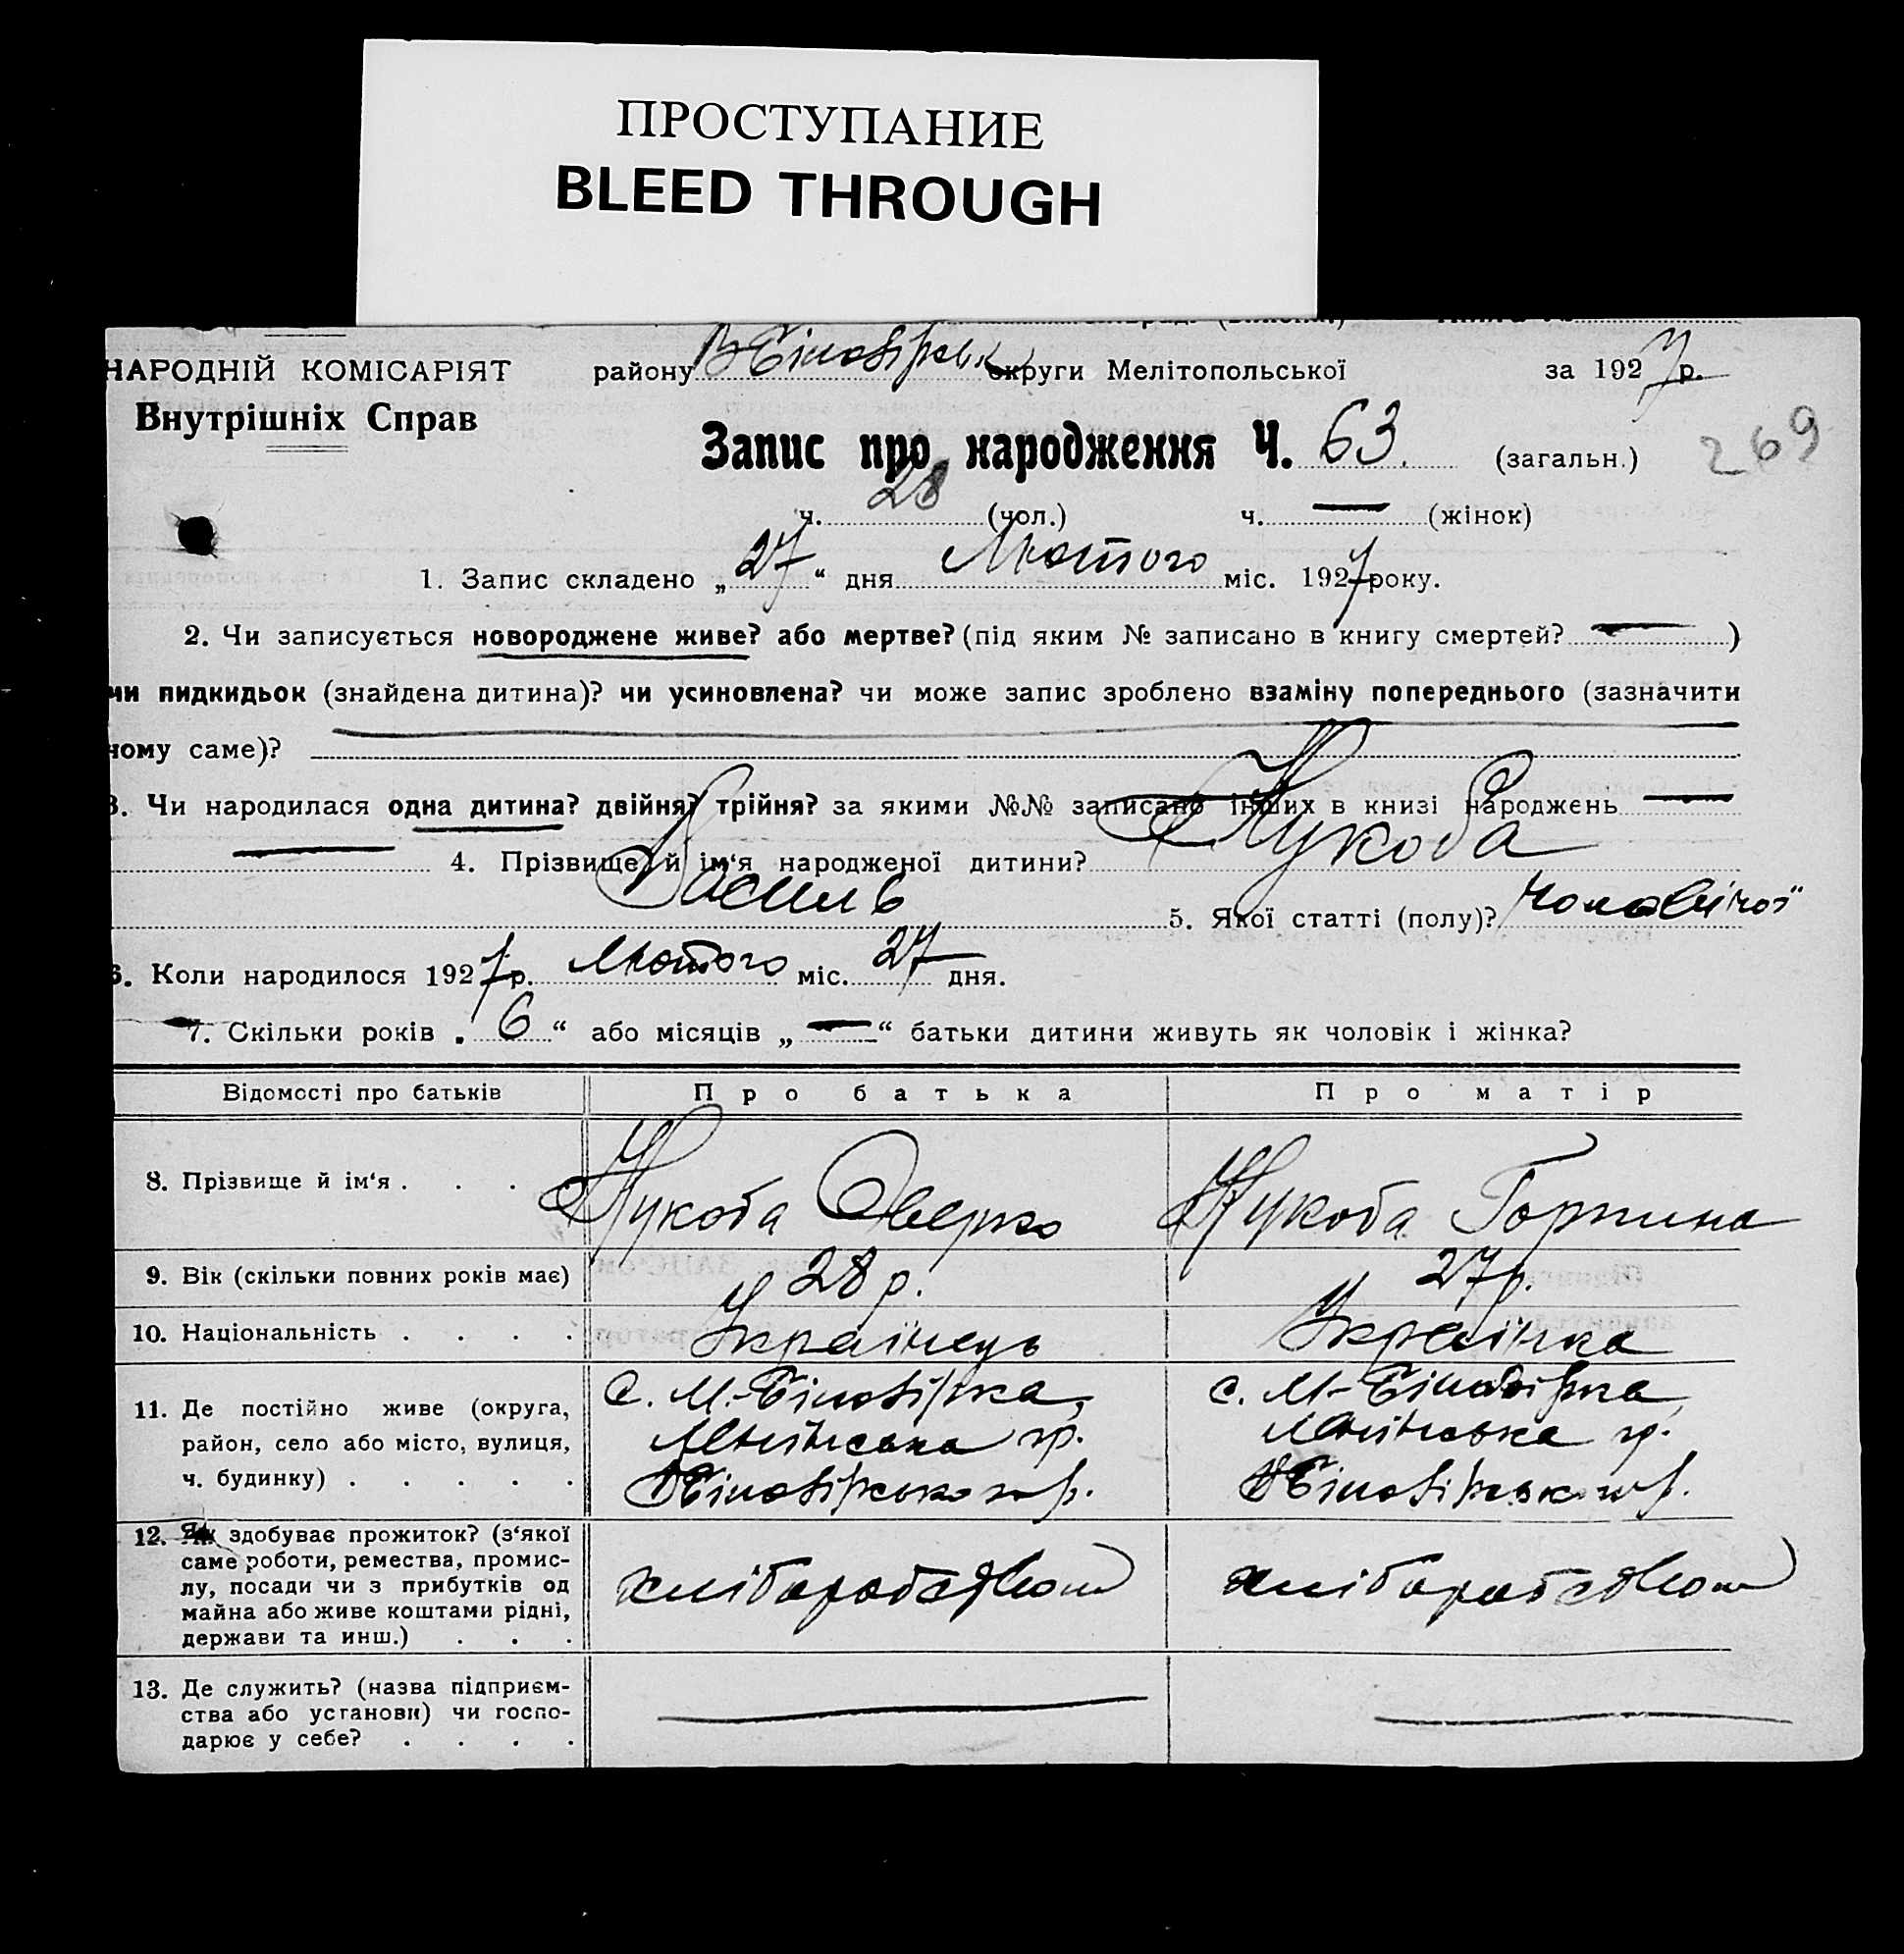 ПРОСТУПАНИЕ
BLEED THROUGH
НАРОДНІЙ КОМІСАРІЯТ
Внутрішніх Справ
району В Білозірськ округи Мелітопольської за 1927 р.
Запис про народження Ч. 63. (загальн.) 269
ч. 28 (чол.) ч. — (жінок)
1. Запис складено „27“ дня Лютого міс. 1927 року.
2. Чи записується новороджене живе? або мертве? (під яким № записано в книгу смертей? — )
чи пидкидьок (знайдена дитина)? чи усиновлена? чи може запис зроблено взаміну попереднього (зазначити
чому саме)?
3. Чи народилася одна дитина? двійня? трійня? за якими №№ записано інших в книзі народжень —
— 4. Прізвище й ім‘я народженої дитини? Жукова
Василь 5. Якої статті (полу)? чоловічої
6. Коли народилося 1927 р. Лютого міс. 27 дня.
7. Скільки років „6“ або місяців „—“ батьки дитини живуть як чоловік і жінка?
Відомості про батьків Про батька Про матір
8. Прізвище й ім‘я . . . . Жукова Оверко Жукова Горпина
9. Вік (скільки повних років має) 28 р. 27 р.
10. Національність . . . . Українець Українка
11. Де постійно живе (округа,
район, село або місто, вулиця,
ч. будинку) . . . . .
с. М.-Білозірка,
гр.
с. М-Білозірка,
гр.
12. Як здобуває прожиток? (з‘якої
саме роботи, ремества, промис-
лу, посади чи з прибутків од
майна або живе коштами рідні,
держави та инш.) . . .
хліборобством хліборобством
13. Де служить? (назва підприєм-
ства або установи) чи госпо-
дарює у себе? . . . .
— —